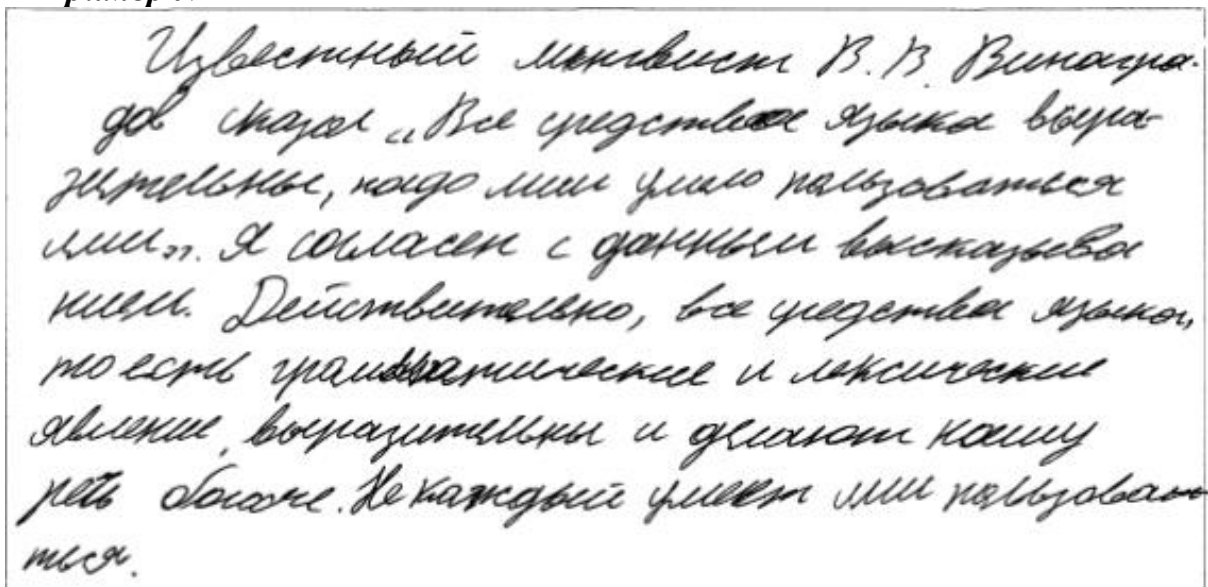 Известный лингвист В. В. Винагра-
дов сказал „Все средства языка выра-
зительны, надо лиш умело пользоваться
ими„. Я согласен с данным высказыва
нием. Действительно, все средства языка,
то есть грамматические и лексические
явление, выразительны и делают нашу
речь богаче. Не каждый умеет ими пользова-
ться.